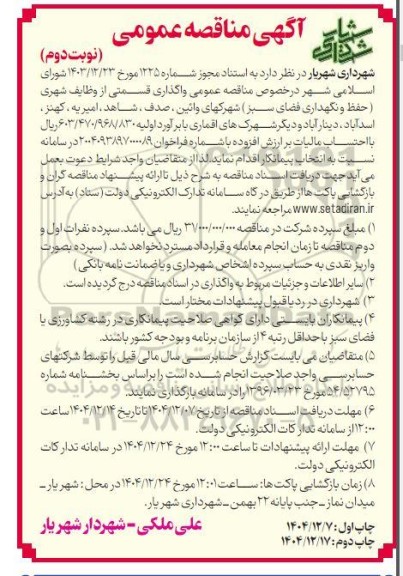 آگهی مناقصه عمومی
(نوبت دوم)
شهرداری شهریار
شهرداری شهریار در نظر دارد به استناد مجوز شماره ۱۲۲۵ مورخ ۱۴۰۳/۱۲/۲۳ شورای
اسلامی شهر درخصوص مناقصه عمومی واگذاری قسمتی از وظایف شهری
(حفظ و نگهداری فضای سبز) شهرکهای وائین ، صدف ، شاهد ، امیریه ، کهنز ،
اسدآباد ، دینارآباد و دیگر شهرک های اقماری با برآورد اولیه ۶۰۳/۴۷۰/۹۶۸/۸۳۰ ریال
با احتساب مالیات بر ارزش افزوده با شماره فراخوان ۲۰۰۴۰۹۳۸۹۷۰۰۰۰۰۹ در سامانه
نسبت به انتخاب پیمانکار اقدام نماید. لذا از متقاضیان واجد شرایط دعوت بعمل
می آید جهت دریافت اسناد مناقصه به شرح ذیل تا ارائه پیشنهاد مناقصه گران و
بازگشایی پاکت ها از طریق درگاه سامانه تدارک الکترونیکی دولت (ستاد) به آدرس
www.setadiran.ir مراجعه نمایند.
۱) مبلغ سپرده شرکت در مناقصه ۳۱/۰۰۰/۰۰۰/۰۰۰ ریال می باشد. سپرده نفرات اول و
دوم مناقصه تا زمان انجام معامله و قرارداد مسترد نخواهد شد. (سپرده بصورت
واریز نقدی به حساب سپرده اشخاص شهرداری و یا ضمانت نامه بانکی)
۲) سایر اطلاعات و جزئیات مربوط به واگذاری در اسناد مناقصه درج گردیده است.
۳) شهرداری در رد یا قبول پیشنهادات مختار است.
۴) پیمانکاران بایستی دارای گواهی صلاحیت پیمانکاری در رشته کشاورزی یا
فضای سبز با حداقل رتبه ۴ از سازمان برنامه و بودجه کشور باشند.
۵) متقاضیان می بایست گزارش حسابرسی سال مالی قبل را توسط شرکتهای
حسابرسی واجد صلاحیت انجام شده است را براساس بخشنامه شماره
۵۴/۵۲۷۹۵ مورخ ۱۳۹۶/۰۳/۲۳ را در سامانه بارگذاری نمایند.
۶) مهلت دریافت اسناد مناقصه از تاریخ ۱۴۰۴/۱۲/۰۷ تا تاریخ ۱۴۰۴/۱۲/۱۴ ساعت
۱۲:۰۰ از سامانه تدارکات الکترونیکی دولت.
۷) مهلت ارائه پیشنهادات تا ساعت ۱۲:۰۰ مورخ ۱۴۰۴/۱۲/۲۴ در سامانه تدارکات
الکترونیکی دولت.
۸) زمان بازگشایی پاکت ها: ساعت ۱۲:۰۱ مورخ ۱۴۰۴/۱۲/۲۴ در محل : شهریار ـ
میدان نماز ـ جنب پایانه ۲۲ بهمن ـ شهرداری شهریار.
چاپ اول : ۱۴۰۴/۱۲/۷
علی ملکی - شهردار شهریار
چاپ دوم : ۱۴۰۴/۱۲/۱۷